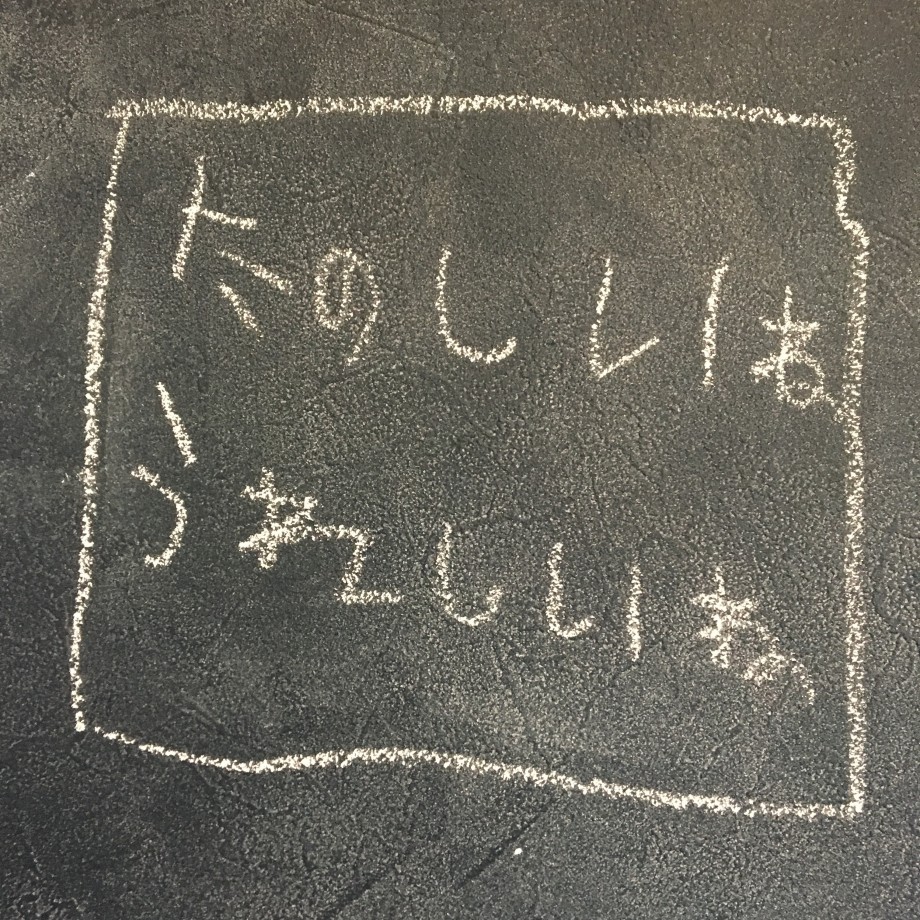 たのしいね
うれしいね